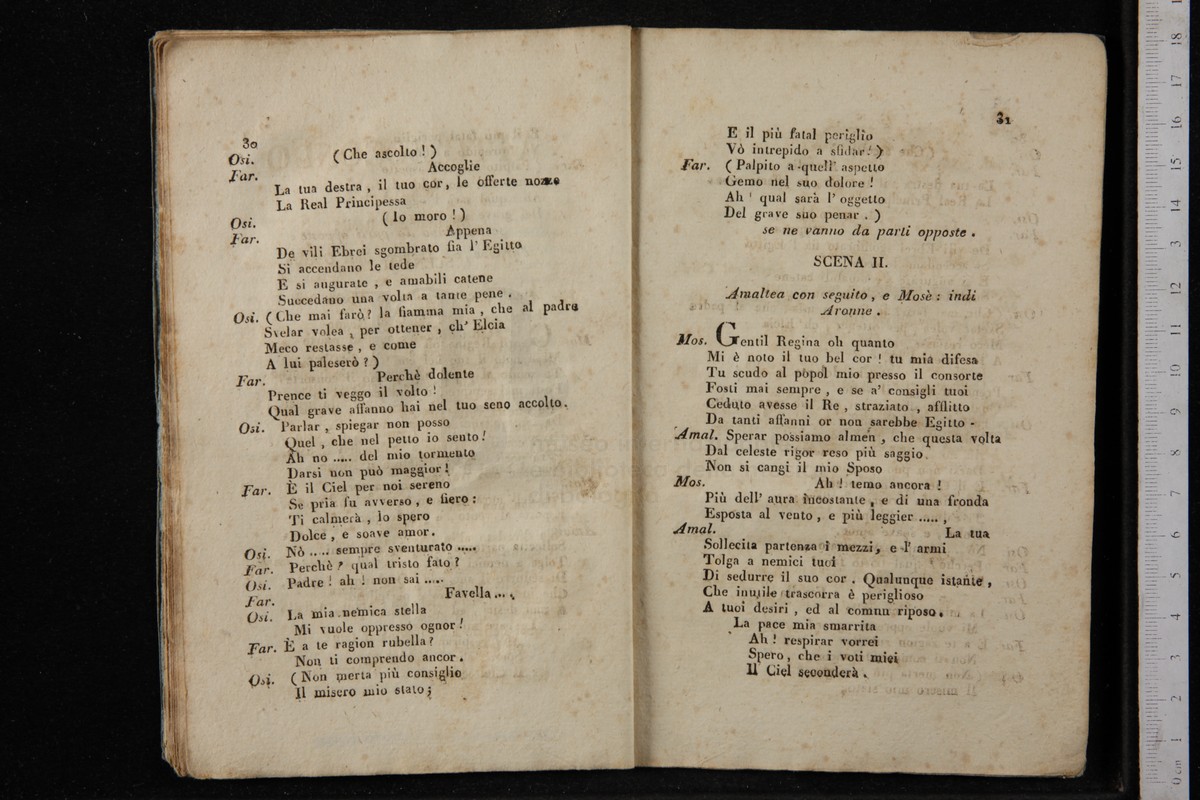 30
Osi. ( Che ascolto ! )
Far. Accoglie
La tua destra , il tuo cor, le offerte nozze
La Real Principessa
Osi. ( Io moro ! )
Far. Appena
De vili Ebrei sgombrato fia l' Egitto
Si accendano le tede
E si augurate , e amabili catene
Succedano una volta a tante pene .
Osi. ( Che mai farò ? la fiamma mia , che al padre
Svelar volea , per ottener , ch' Elcia
Meco restasse , e come
A lui paleserò ? )
Far. Perchè dolente
Prence ti veggo il volto !
Qual grave affanno hai nel tuo seno accolto.
Osi. Parlar , spiegar non posso
Quel , che nel petto io sento !
Ah no ..... del mio tormento
Darsi non può maggior !
Far. È il Ciel per noi sereno
Se pria fu avverso , e fiero :
Ti calmerà , lo spero
Dolce , e soave amor.
Osi. Nò ..... sempre sventurato .....
Far. Perchè ? qual tristo fato ?
Osi. Padre ! ah ! non sai .....
Far. Favella ....
Osi. La mia nemica stella
Mi vuole oppresso ognor !
Far. È a te ragion rubella ?
Non ti comprendo ancor .
Osi. ( Non merta più consiglio
Il misero mio stato ;
31
E il più fatal periglio
Vò intrepido a sfidar ! )
Far. ( Palpito a quell' aspetto
Gemo nel suo dolore !
Ah ! qual sarà l' oggetto
Del grave suo penar . )
se ne vanno da parti opposte .
SCENA II.
Amaltea con seguito , e Mosè : indi
Aronne .
Mos. Gentil Regina oh quanto
Mi è noto il tuo bel cor ! tu mia difesa
Tu scudo al popol mio presso il consorte
Fosti mai sempre , e se a' consigli tuoi
Ceduto avesse il Re , straziato , afflitto
Da tanti affanni or non sarebbe Egitto -
Amal. Sperar possiamo almen , che questa volta
Dal celeste rigor reso più saggio
Non si cangi il mio Sposo
Mos. Ah ! temo ancora !
Più dell' aura incostante , e di una fronda
Esposta al vento , e più leggier ..... ,
Amal. La tua
Sollecita partenza i mezzi, e l' armi
Tolga a nemici tuoi
Di sedurre il suo cor . Qualunque istante ,
Che inutile trascorra è periglioso
A tuoi desiri , ed al comun riposo .
La pace mia smarrita
Ah ! respirar vorrei
Spero , che i voti miei
Il Ciel seconderà .